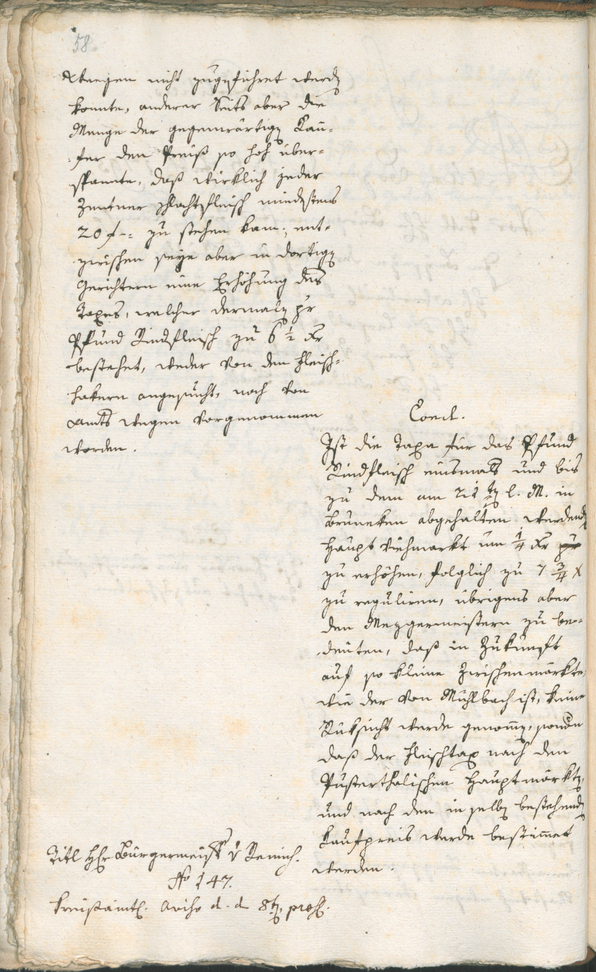 58
wegen nicht zugeführet werden
konnte, anderer Seits aber die
Menge der gegenwärtigen Käu-
fer den Preiß so hoch über-
spannte, daß wirklich jeder
Zentner Schlachtfleisch mindestens
20 f -- zu stehen kam; ent-
zwischen seye aber in dortigen
Gerichtern eine Erhöhung des
Taxes, welcher dermalen pr
Pfund Rindfleisch zu 6 1/2 Xr
bestehet, weder von den Fleisch-
hakern angesucht, noch von
Amts wegen vorgenommen
worden.
Concl.
Ist die Taxa für das Pfund
Rindfleisch einsmals und bis
zu dem am 21ten l. M. in
Bruneken abgehalten werdenden
Haupt Viehmarkt um 1/4 Xr
zu erhöhen, folglich zu 7 3/4 X
zu reguliren, übrigens aber
den Mezgermeistern zu be-
deuten, daß in Zukunft
auf so kleine Zwischenmärkte,
wie der von Mühlbach ist, keine
Rüksicht werde genommen, sondern
daß der Fleischtax nach den
Pusterthalischen Hauptmärkten,
und nach den in selben bestehenden
Kaufpreis werde bestimmet
werden.
Titl Hr Bürgermeister v Remich.
No 147.
Kreisämtl. d. d 8ten, pros.